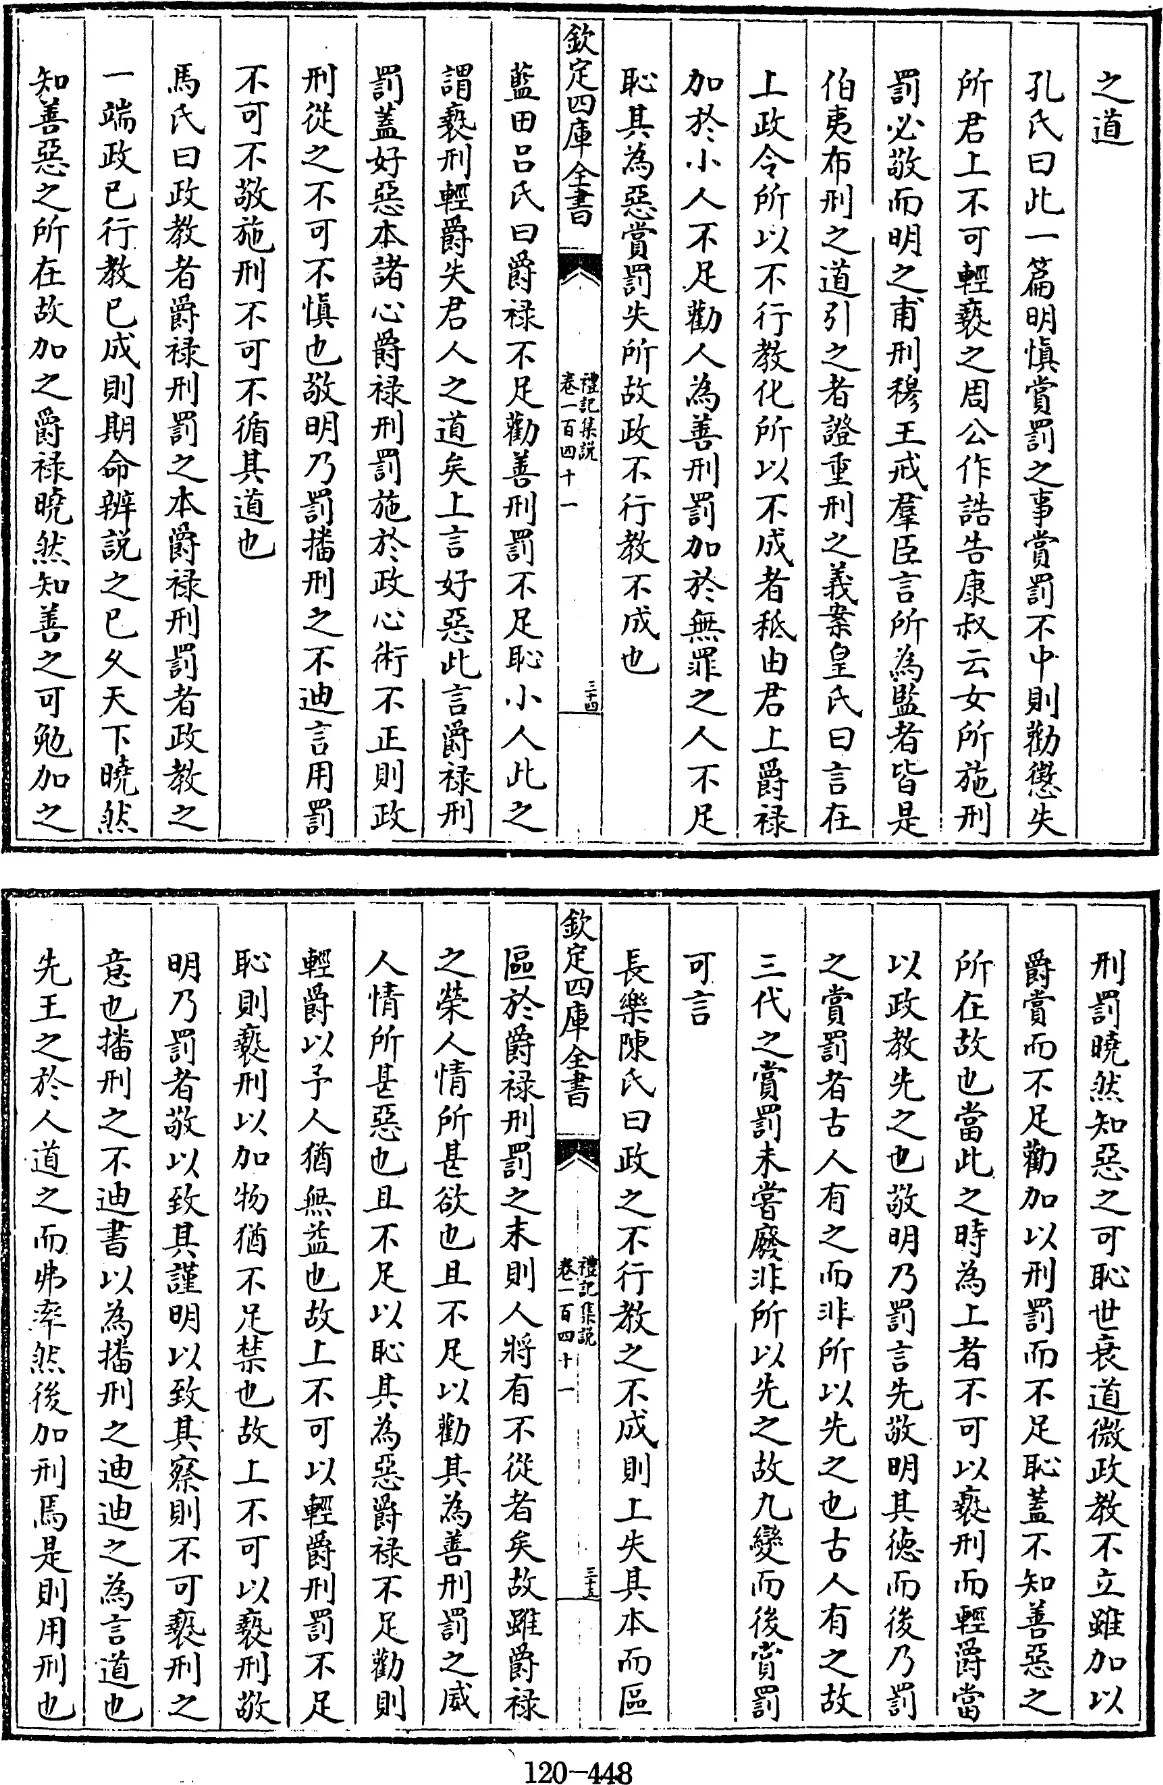 之道
孔氏曰此一篇明慎賞罰之事賞罰不中則勸懲失
所君上不可輕褻之周公作誥告康叔云女所施刑
罰必敬而明之甫刑穆王戒羣臣言所為監者皆是
伯夷布刑之道引之者證重刑之義案皇氏曰言在
上政令所以不行教化所以不成者秪由君上爵禄
加於小人不足勸人為善刑罰加於無罪之人不足
恥其為惡賞罰失所故政不行教不成也
欽定四庫全書
禮記集説
卷一百四十一
三十四
藍田吕氏曰爵禄不足勸善刑罰不足恥小人此之
謂褻刑輕爵失君人之道矣上言好惡此言爵禄刑
罰蓋好惡本諸心爵禄刑罰施於政心術不正則政
刑從之不可不慎也敬明乃罰播刑之不迪言用罰
不可不敬施刑不可不循其道也
馬氏曰政教者爵禄刑罰之本爵禄刑罰者政教之
一端政已行教已成則期命辨説之已久天下曉然
知善惡之所在故加之爵禄曉然知善之可勉加之
刑罰曉然知惡之可恥世衰道微政教不立雖加以
爵賞而不足勸加以刑罰而不足恥蓋不知善惡之
所在故也當此之時為上者不可以褻刑而輕爵當
以政教先之也敬明乃罰言先敬明其徳而後乃罰
之賞罰者古人有之而非所以先之也古人有之故
三代之賞罰未嘗廢非所以先之故九變而後賞罰
可言
長樂陳氏曰政之不行教之不成則上失其本而區
欽定四庫全書
禮記集説
卷一百四十一
三十五
區於爵禄刑罰之末則人將有不從者矣故雖爵禄
之榮人情所甚欲也且不足以勸其為善刑罰之威
人情所甚惡也且不足以恥其為惡爵禄不足勸則
輕爵以予人猶無益也故上不可以輕爵刑罰不足
恥則褻刑以加物猶不足禁也故上不可以褻刑敬
明乃罰者敬以致其謹明以致其察則不可褻刑之
意也播刑之不迪書以為播刑之迪迪之為言道也
先王之於人道之而弗率然後加刑焉是則用刑也
120-448